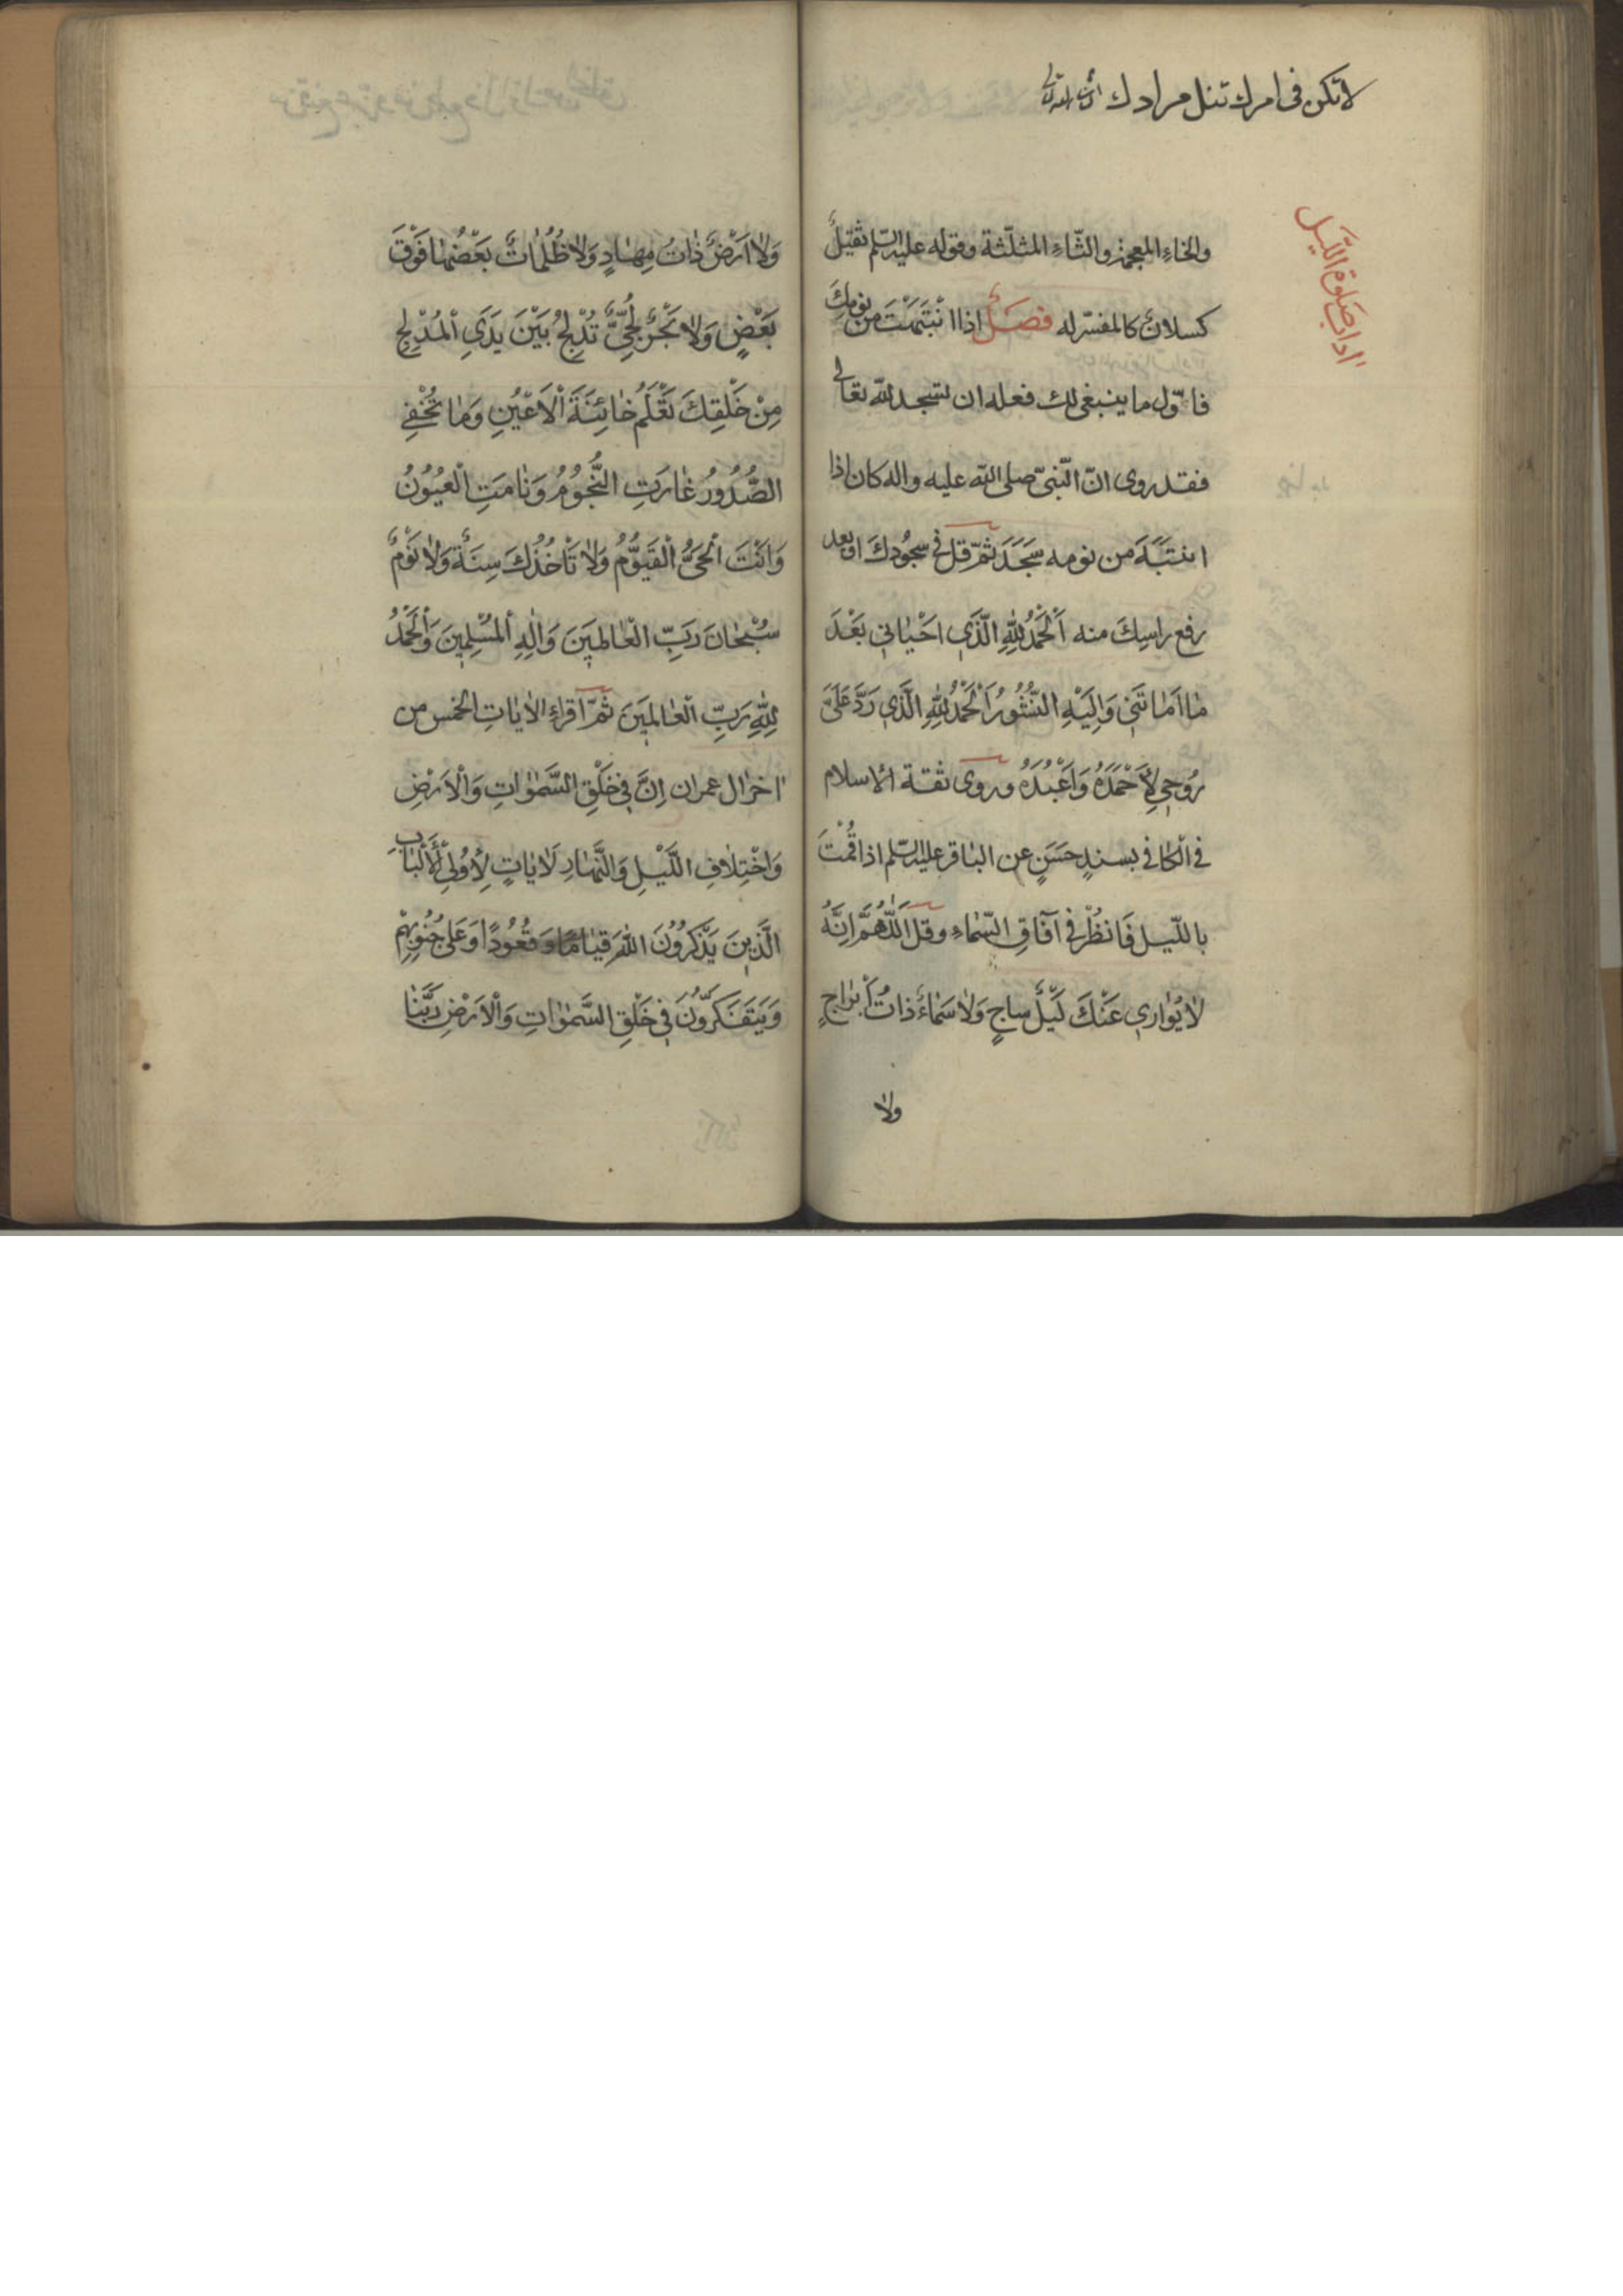 لا تكن فى امرك تنل مرادك
اداب صلوة اللّيل
والخاءِ المعجمة والثّاءِ المثلّثة وقوله عليه السّلم ثقيلٌ
كسلانٌ كالمفسّر له فصلٌ اذا انْتَبَهْتَ من نومِكَ
فاوّل ما ينبغى لك فعله ان تسجد للّه تعالى
فقد روى انّ النّبىّ صلى اللّه عليه واله كان اذا
انتَبَهَ من نومه سَجَدَ ثمّ قل فى سجُودكَ او بعد
رفع راسِكَ منه اَلْحَمْدُ لِلّٰهِ الَّذي اَحْيٰاني بَعْدَ
مٰا اَمٰاتَني وَاِلَيْهِ النُّشُورُ اَلْحَمْدُ لِلّٰهِ الَّذي رَدَّ عَلَىَّ
رُوحي لِاَحْمَدَهُ وَاَعْبُدَهُ وروى ثقة الاسلام
فى الْكافى بسندٍ حَسَنٍ عن الباقر عليه السّلم اذا قُمْتَ
باللّيل فَانظُرْ فى آفَاقِ السّماءِ وقل اَللّٰهُمَّ اِنَّهُ
لٰا يُوٰاري عَنْكَ لَيْلٌ سٰاجٍ وَلٰا سَمٰاءٌ ذٰاتُ اَبْرٰاجٍ
ولا
وَلٰا اَرْضٌ ذٰاتُ مِهٰادٍ وَلٰا ظُلُمٰاتٌ بَعْضُهٰا فَوْقَ
بَعْضٍ وَلٰا بَحْرٌ لُجِّيٌّ تُدْلِجُ بَيْنَ يَدَيِ الْمُدْلِجِ
مِنْ خَلْقِكَ تَعْلَمُ خٰائِنَةَ الْاَعْيُنِ وَمٰا تُخْفِي
الصُّدُورُ غٰارَتِ النُّجُومُ وَنٰامَتِ الْعُيُونُ
وَاَنْتَ الْحَىُّ الْقَيُّومُ وَلٰا تَأْخُذُكَ سِنَةٌ وَلٰا نَوْمٌ
سُبْحٰانَ رَبِّ الْعٰالَمينَ وَاِلٰهِ الْمُسْلِمينَ وَالْحَمْدُ
لِلّٰهِ رَبِّ الْعٰالَمينَ ثمّ اقراءِ الاٰيٰاتِ الخمس من
اٰخر اٰل عمران اِنَّ في خَلْقِ السَّمٰوٰاتِ وَالْاَرْضِ
وَاخْتِلٰافِ اللَّيْلِ وَالنَّهٰارِ لَاٰيٰاتٍ لِاُولِي الْاَلْبٰابِ
الَّذينَ يَذْكُرُونَ اللّٰهَ قِيٰامًا وَقُعُودًا وَعَلىٰ جُنُوبِهِمْ
وَيَتَفَكَّرُونَ في خَلْقِ السَّمٰوٰاتِ وَالْاَرْضِ رَبَّنٰا